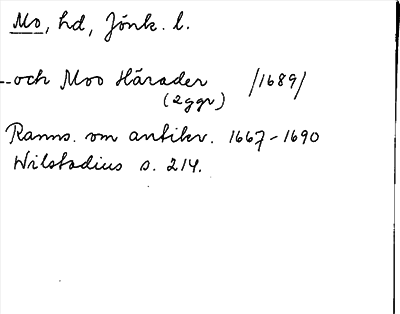 Mo, hd, Jönk. l.
--och Moo Härader /1689/
(2ggr)
Ranns. om antikv. 1667-1690
Wilstadius s. 214.